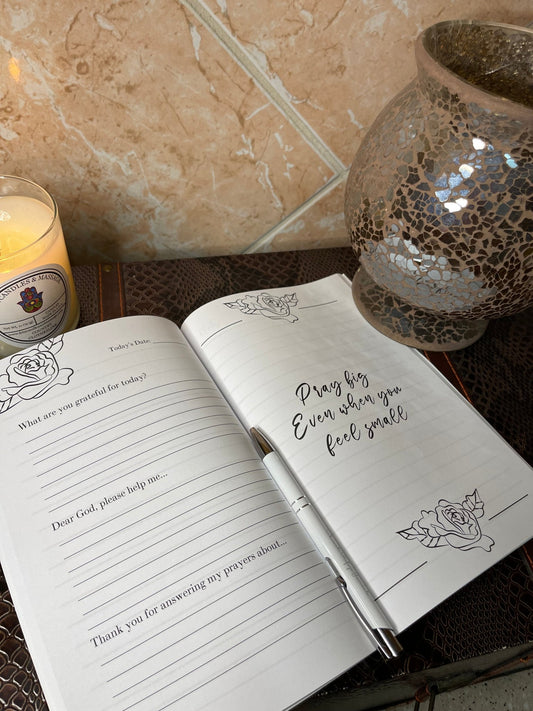 KANGLES & MASSAGE
Today's Date:
What are you grateful for today?
Dear God, please help me...
Thank you for answering my prayers about...
Pray big
Even when you
feel small